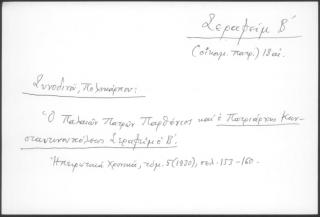 Σεραφείμ Β΄
(οἰκουμ. πατρ.) 18 αἰ.
Συνοδινοῦ, Πολυκάρπου:
Ὁ Παλαιῶν Πατρῶν Παρθένιος καὶ ὁ Πατριάρχης Κων-
σταντινουπόλεως Σεραφεὶμ ὁ Β΄.
Ἠπειρωτικὰ Χρονικά, τόμ. 5 (1930), σελ. 153-160.